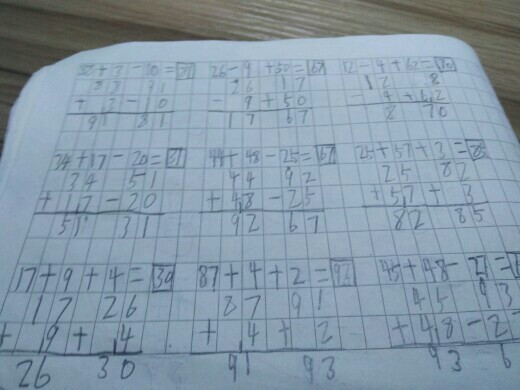 26-9+50=67
26 17
- 9+50
17 67
12-4+62=70
12 8
- 4+62
8 70
34+17-20=31
34 51
+17-20
51 31
44+48-25=67
44 92
+48-25
92 67
25+57+3=85
25 82
+57+ 3
82 85
17+9+4=30
17 26
+ 9+ 4
26 30
87+4+2=93
87 91
+ 4+ 2
91 93
45+48-
45 93
+48-2
93 6